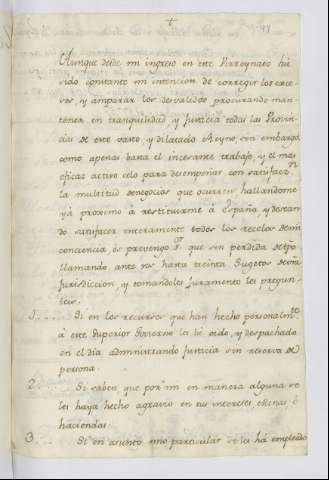 +
Aunque desde mi ingreso en este Virreynato há
sido constante mi intencion de corregir los exce-
sos, y amparar los desvalidos procurando man-
tener en tranquilidad y Justicia todas las Provin-
cias de este vasto, y dilatado Reyno, sin embargo
como apenas basta el incesante trabajo, y el mas
eficaz activo celo para desempeñar con satisfaccn
la multitud de negocios que ocurren hallandome
yá proximo á restituirme á España y desean-
do satisfacer enteramente todos los recelos de mi
conciencia, os prevengo que sin perdida de tpo
llamando ante vos hasta treinta Sugetos de esa
Jurisdiccion, y tomandoles juramento les pregun-
teis.
1.... Si en los recursos que han hecho personalmte
á este Superior Govierno les hé oido, y despachado
en el dia administrando Justicia sin reserva de
persona.
2.... Si saben que por mi en manera alguna se
les haya hecho agravio en sus intereses, Minas ó
haciendas.
3.... Si en asunto mio particular se les há empleado